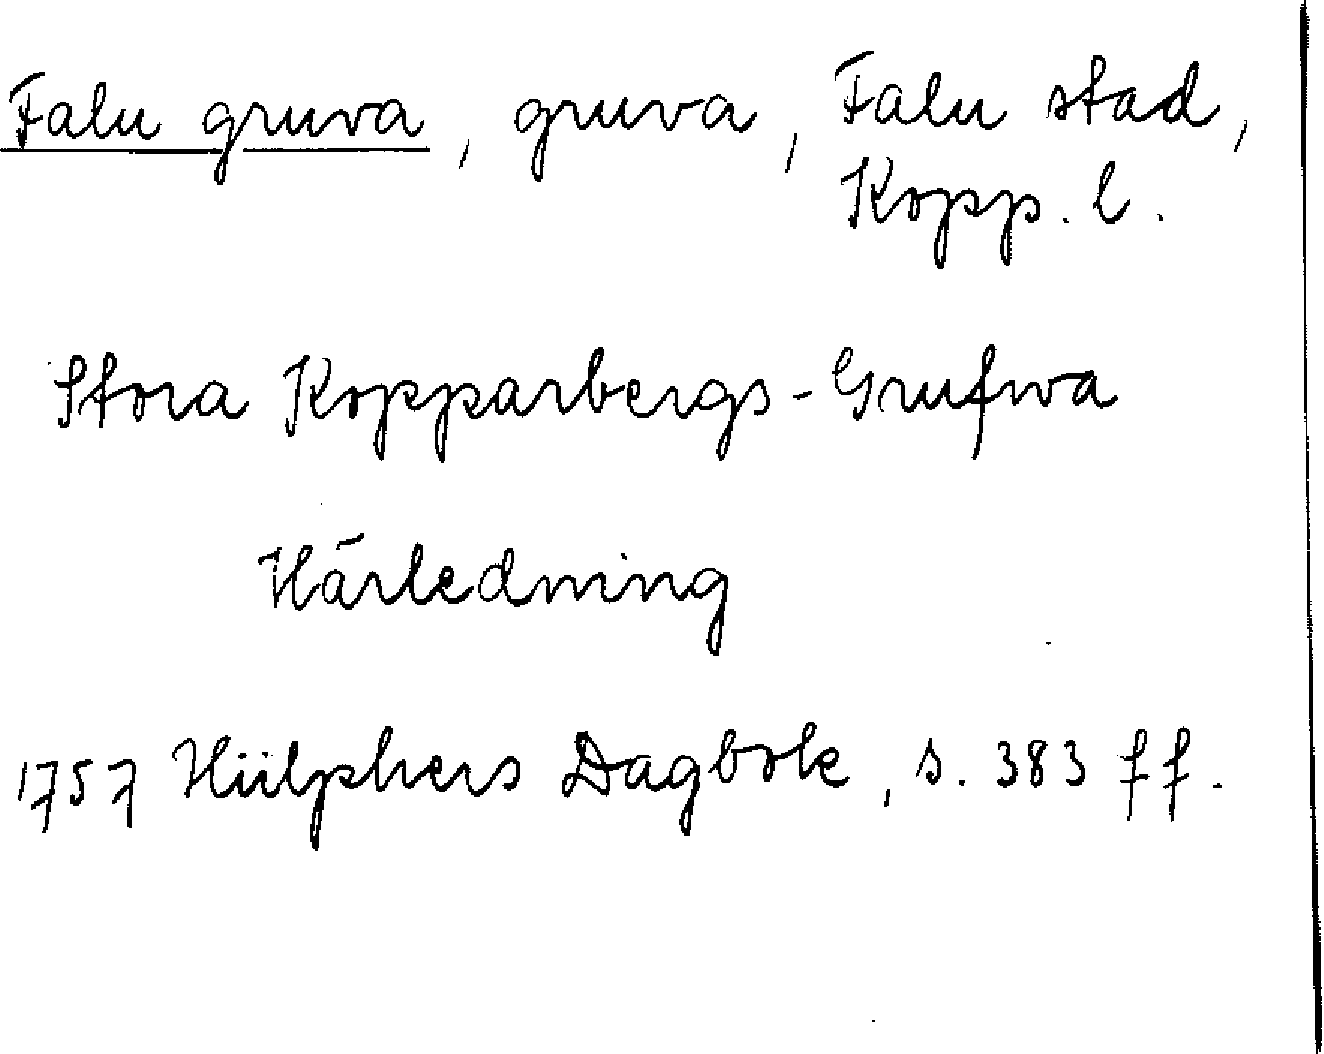 Falu gruva, gruva, Falu stad,
Kopp. l.
Stora Kopparbergs-Grufwa
Härledning
1757 Hülphers Dagbok, s. 383 ff.